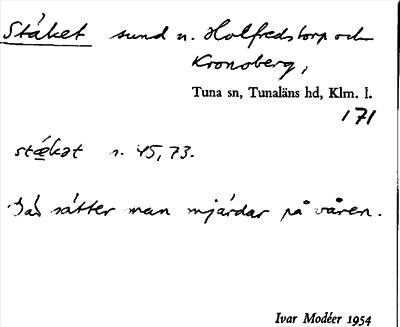 Ståket sund n. Holfredstorp och
Kronoberg,
Tuna sn, Tunaläns hd, Klm. l.
171
stǽkət n. 45,73.
Där sätter man mjärdar på våren.
Ivar Modéer 1954